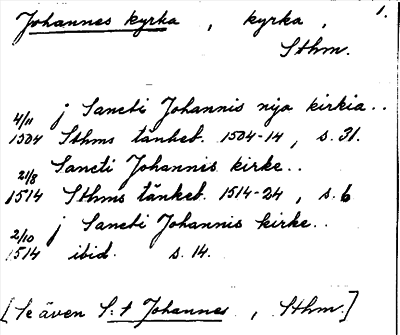 Johannes kyrka, kyrka, 1.
Sthm.
4/11 j Sancti Johannis nija kirkia..
1504 Sthms tänkeb. 1504-14, s. 31.
21/8 Sancti Johannis kirke..
1514 Sthms tänkeb. 1514-24, s. 6
2/10 j Sancti Johannis kirke..
1514 ibid. s. 14.
[Se även S:t Johannes, Sthm.]